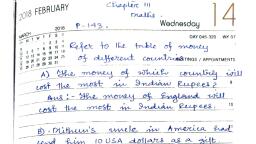 2018 FEBRUARY
Chapter III
Maths.
14
MARCH 2018
P-143.
Wednesday
DAY 045-320 WK 07
Refer to the table of money
of different countries
TINGS / APPOINTMENTS
A) The money of which country will
cost the most in Indian Rupees?
Ans:- The money of England will
cost the most in Indian Rupees.
B) Mithun's uncle in America had
send him 10 USA dollars as a gift.